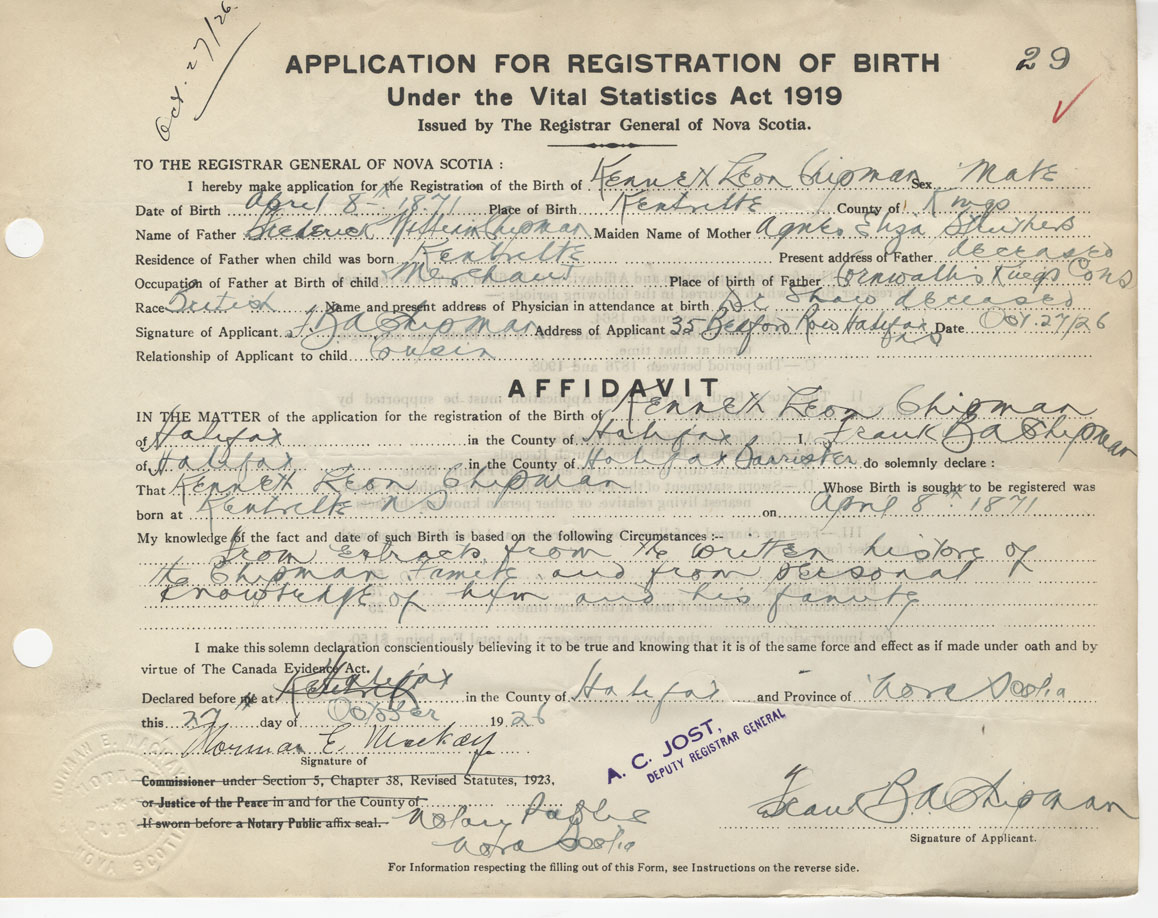 Oct. 27/26
29
APPLICATION FOR REGISTRATION OF BIRTH
Under the Vital Statistics Act 1919
Issued by The Registrar General of Nova Scotia.
TO THE REGISTRAR GENERAL OF NOVA SCOTIA :
I hereby make application for the Registration of the Birth of Kenneth Leon Chipman Sex Male
Date of Birth April 8th 1871 Place of Birth Kentville County of Kings
Name of Father Frederick William Chipman Maiden Name of Mother Agnes Eliza Struthers
Residence of Father when child was born Kentville Present address of Father deceased
Occupation of Father at Birth of child Merchant Place of birth of Father Cornwallis Kings Co NS
Race British Name and present address of Physician in attendance at birth Dr. Shaw deceased
Signature of Applicant Chipman Address of Applicant 35 Bedford Row Halifax NS Date Oct 27/26
Relationship of Applicant to child Cousin
AFFIDAVIT
IN THE MATTER of the application for the registration of the Birth of Kenneth Leon Chipman
of Halifax in the County of Halifax I, Frank B A Chipman
of Halifax in the County of Halifax Barrister do solemnly declare :
That Kenneth Leon Chipman Whose Birth is sought to be registered was
born at Kentville N S on April 8th 1871
My knowledge of the fact and date of such Birth is based on the following Circumstances :-
From Extracts from the written history of
the Chipman Family and from personal
Knowledge of him and his family
I make this solemn declaration conscientiously believing it to be true and knowing that it is of the same force and effect as if made under oath and by
virtue of The Canada Evidence Act.
Declared before me at Kentville Halifax in the County of Halifax and Province of Nova Scotia
this 27 day of October 1926
Norman E. Mackay
Signature of
A. C. JOST,
DEPUTY REGISTRAR GENERAL
Commissioner under Section 5, Chapter 38, Revised Statutes, 1923,
or Justice of the Peace in and for the County of
If sworn before a Notary Public affix seal. Notary Public
Nova Scotia
Frank B A Chipman
Signature of Applicant.
For Information respecting the filling out of this Form, see Instructions on the reverse side.